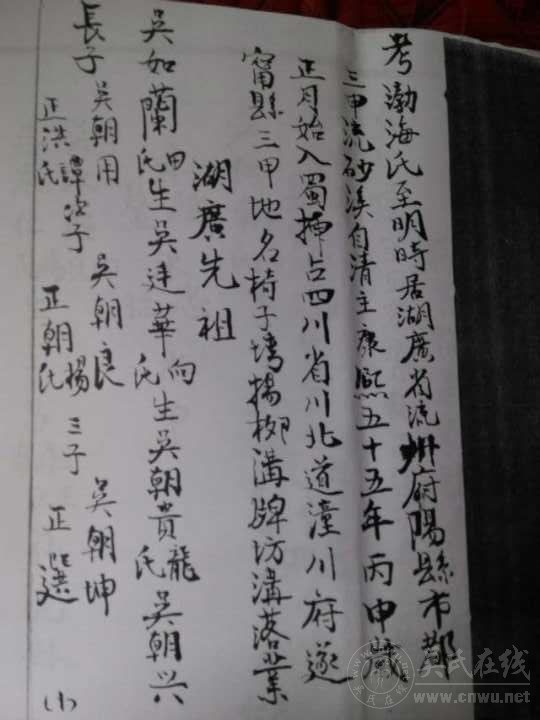 考渤海氏至明時居湖廣省流州府陽縣市都
三甲流砂溪自清主康熙五十五年丙申歲
正月始入蜀插占四川省川北道潼川府遂
甯縣三甲地名椅子塆揚栁溝牌坊溝落業
湖廣先祖
吳如蘭田氏生吳廷華向氏生吳朝貴龍氏吳朝兴
長子吳朝用 吳朝良 吳朝坤
正洪譚氏次子 正朝楊氏 三子 正選
(1)
吴氏在线
www.cnwu.net